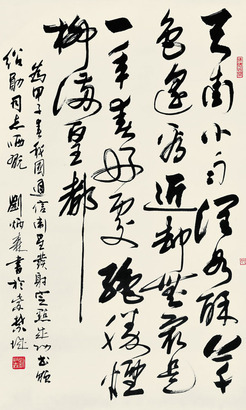 天街小雨潤如酥草
色遥看近却無最是
一年春好處絕勝煙
柳滿皇都
為甲子春我國通信衛星發射定點成功書頌
同志哂 劉炳森書於